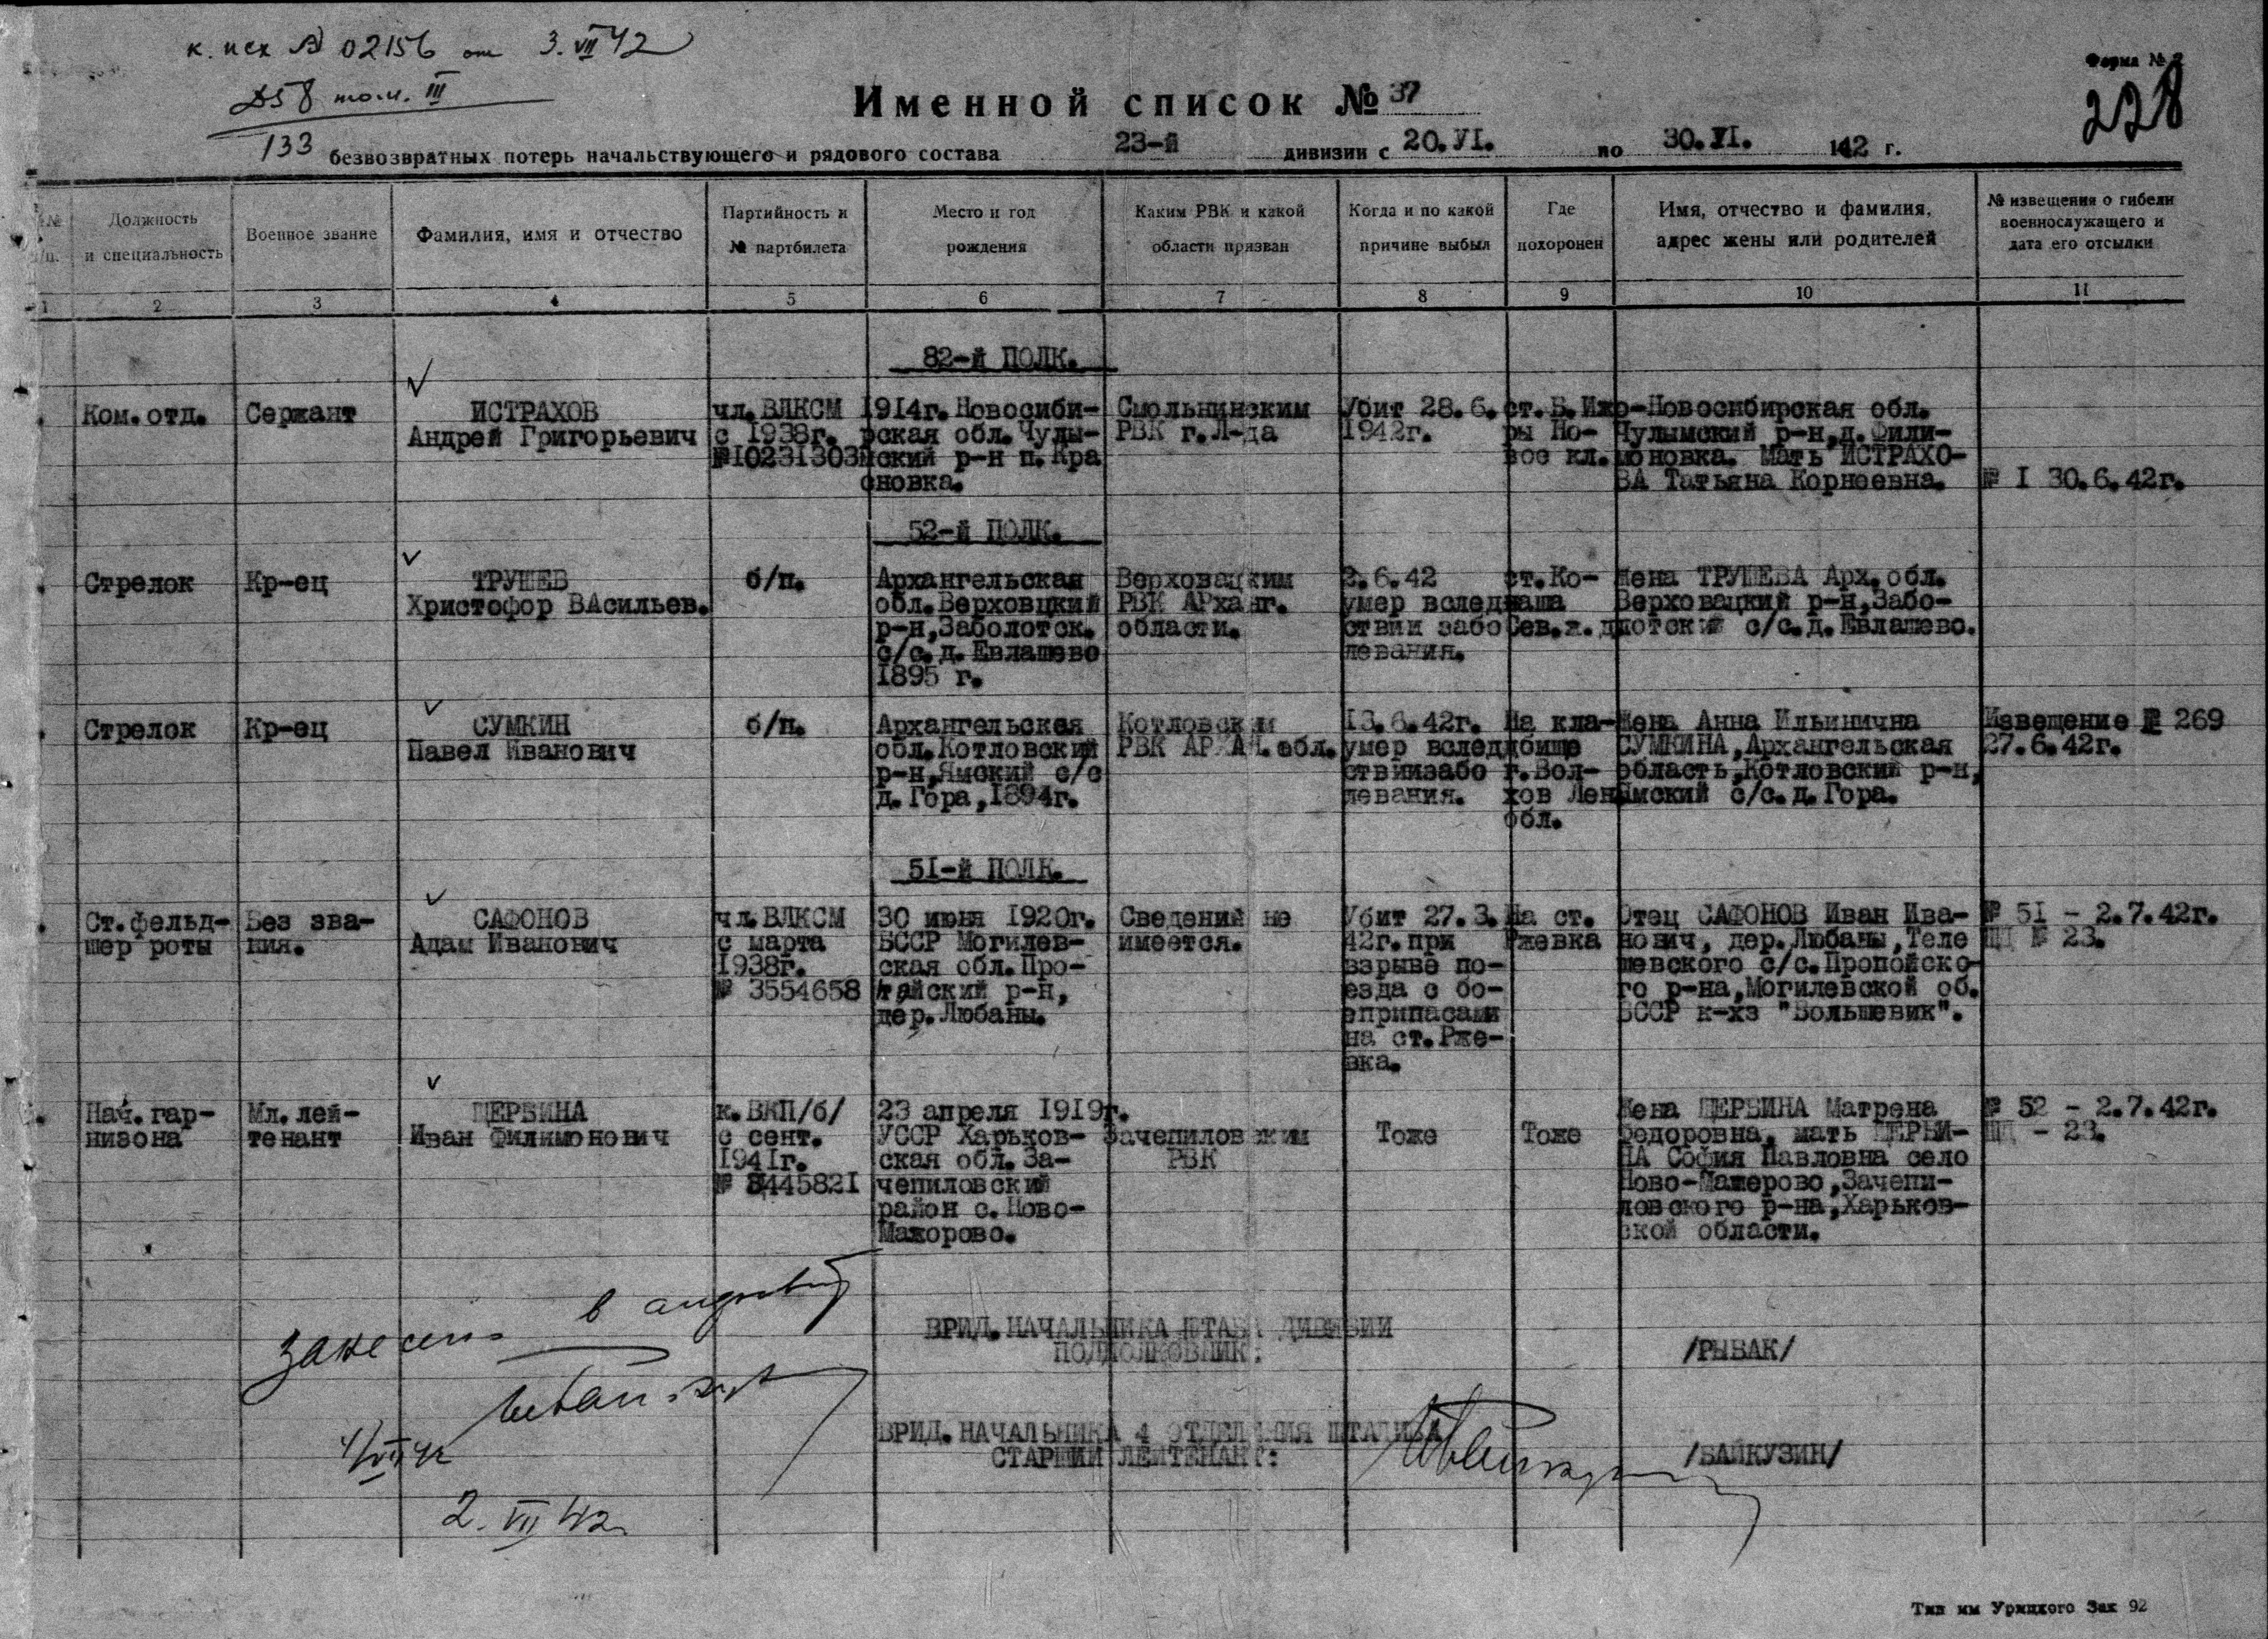 к. исх № 02156 от 3.VII 42
Д58 том. III
133
Форма № 2
228
Именной список № 37
безвозвратных потерь начальствующего и рядового состава 23-й дивизии с 20.VI. по 30.VI. 142 г.
№ п.
Должность и специальность
Военное звание
Фамилия, имя и отчество
Партийность и № партбилета
Место и год рождения
Каким РВК и какой области призван
Когда и по какой причине выбыл
Где похоронен
Имя, отчество и фамилия, адрес жены или родителей
№ извещения о гибели военнослужащего и дата его отсылки
1 2 3 4 5 6 7 8 9 10 11
82-й ПОЛК.
Ком.отд.
Сержант
ИСТРАХОВ
Андрей Григорьевич
чл.ВЛКСМ
с 1938г.
№10231303
1914г.Новосиби-
рская обл.Чулы-
мский р-н п.Кра
сновка.
Смольнинским
РВК г.Л-да
Убит 28.6.
1942г.
ст.Б.Ижо-
ры Но-
вое кл.
Новосибирская обл.
Чулымский р-н,д.Фили-
моновка. Мать ИСТРАХО-
ВА Татьяна Корнеевна.
№ I 30.6.42г.
52-й ПОЛК.
Стрелок
Кр-ец
ТРУШЕВ
Христофор ВАсильев.
б/п.
Архангельская
обл.Верховцкий
р-н,Заболотск.
с/с.д.Евлашево
1895 г.
Верховацким
РВК АРханг.
области.
2.6.42
умер вслед
ствии забо
левания.
ст.Ко-
наша
Сев.ж.д
Жена ТРУШЕВА Арх.обл.
Верховацкий р-н,Забо-
лотский с/с.д.Евлашево.
Стрелок
Кр-ец
СУМКИН
Павел Иванович
б/п.
Архангельская
обл.Котловский
р-н,Ямский с/с
д.Гора,1894г.
Котловским
РВК АРХАН.обл.
13.6.42г.
умер вслед
ствиизабо
левания.
На кла-
дбище
г.Вол-
хов Лен
обл.
Жена Анна Ильинична
СУМКИНА,Архангельская
область,Котловский р-н,
Ямский с/с.д.Гора.
Извещение № 269
27.6.42г.
51-й ПОЛК.
Ст.фельд-
шер роты
Без зва-
ния.
САФОНОВ
Адам Иванович
чл.ВЛКСМ
с марта
1938г.
№ 3554658
30 июня 1920г.
БССР Могилев-
ская обл.Про-
тайский р-н,
дер.Любаны.
Сведений не
имеется.
Убит 27.3.
42г.при
взрыве по-
езда с бо-
еприпасами
на ст.Рже-
вка.
На ст.
Ржевка
Отец САФОНОВ Иван Ива-
нович, дер.Любаны,Теле
шевского с/с.Пропойско-
го р-на,Могилевской об.
БССР к-хз "Большевик".
№ 51 - 2.7.42г.
ШД № 23.
Нач.гар-
низона
Мл.лей-
тенант
ЩЕРБИНА
Иван Филимонович
к.ВКП/б/
с сент.
1941г.
№ 8445821
23 апреля 1919г.
УССР Харьков-
ская обл.За-
чепиловский
район с.Ново-
Мажорово.
Зачепиловским
РВК
Тоже
Тоже
Жена ЩЕРБИНА Матрена
Федоровна, мать ЩЕРБИ-
НА София Павловна село
Ново-Машерово,Зачепи-
ловского р-на,Харьков-
ской области.
№ 52 - 2.7.42г.
ШД - 23.
ВРИД.НАЧАЛЬНИКА ШТАБА ДИВИЗИИ
ПОДПОЛКОВНИК:
/РЫБАК/
ВРИД.НАЧАЛЬНИКА 4 ОТДЕЛЕНИЯ ШТАДИВА
СТАРШИЙ ЛЕЙТЕНАНТ:
/БАЙКУЗИН/
занесен в алфавит
4/VII 42
2.VII 42
Тип им Урицкого Зак 92